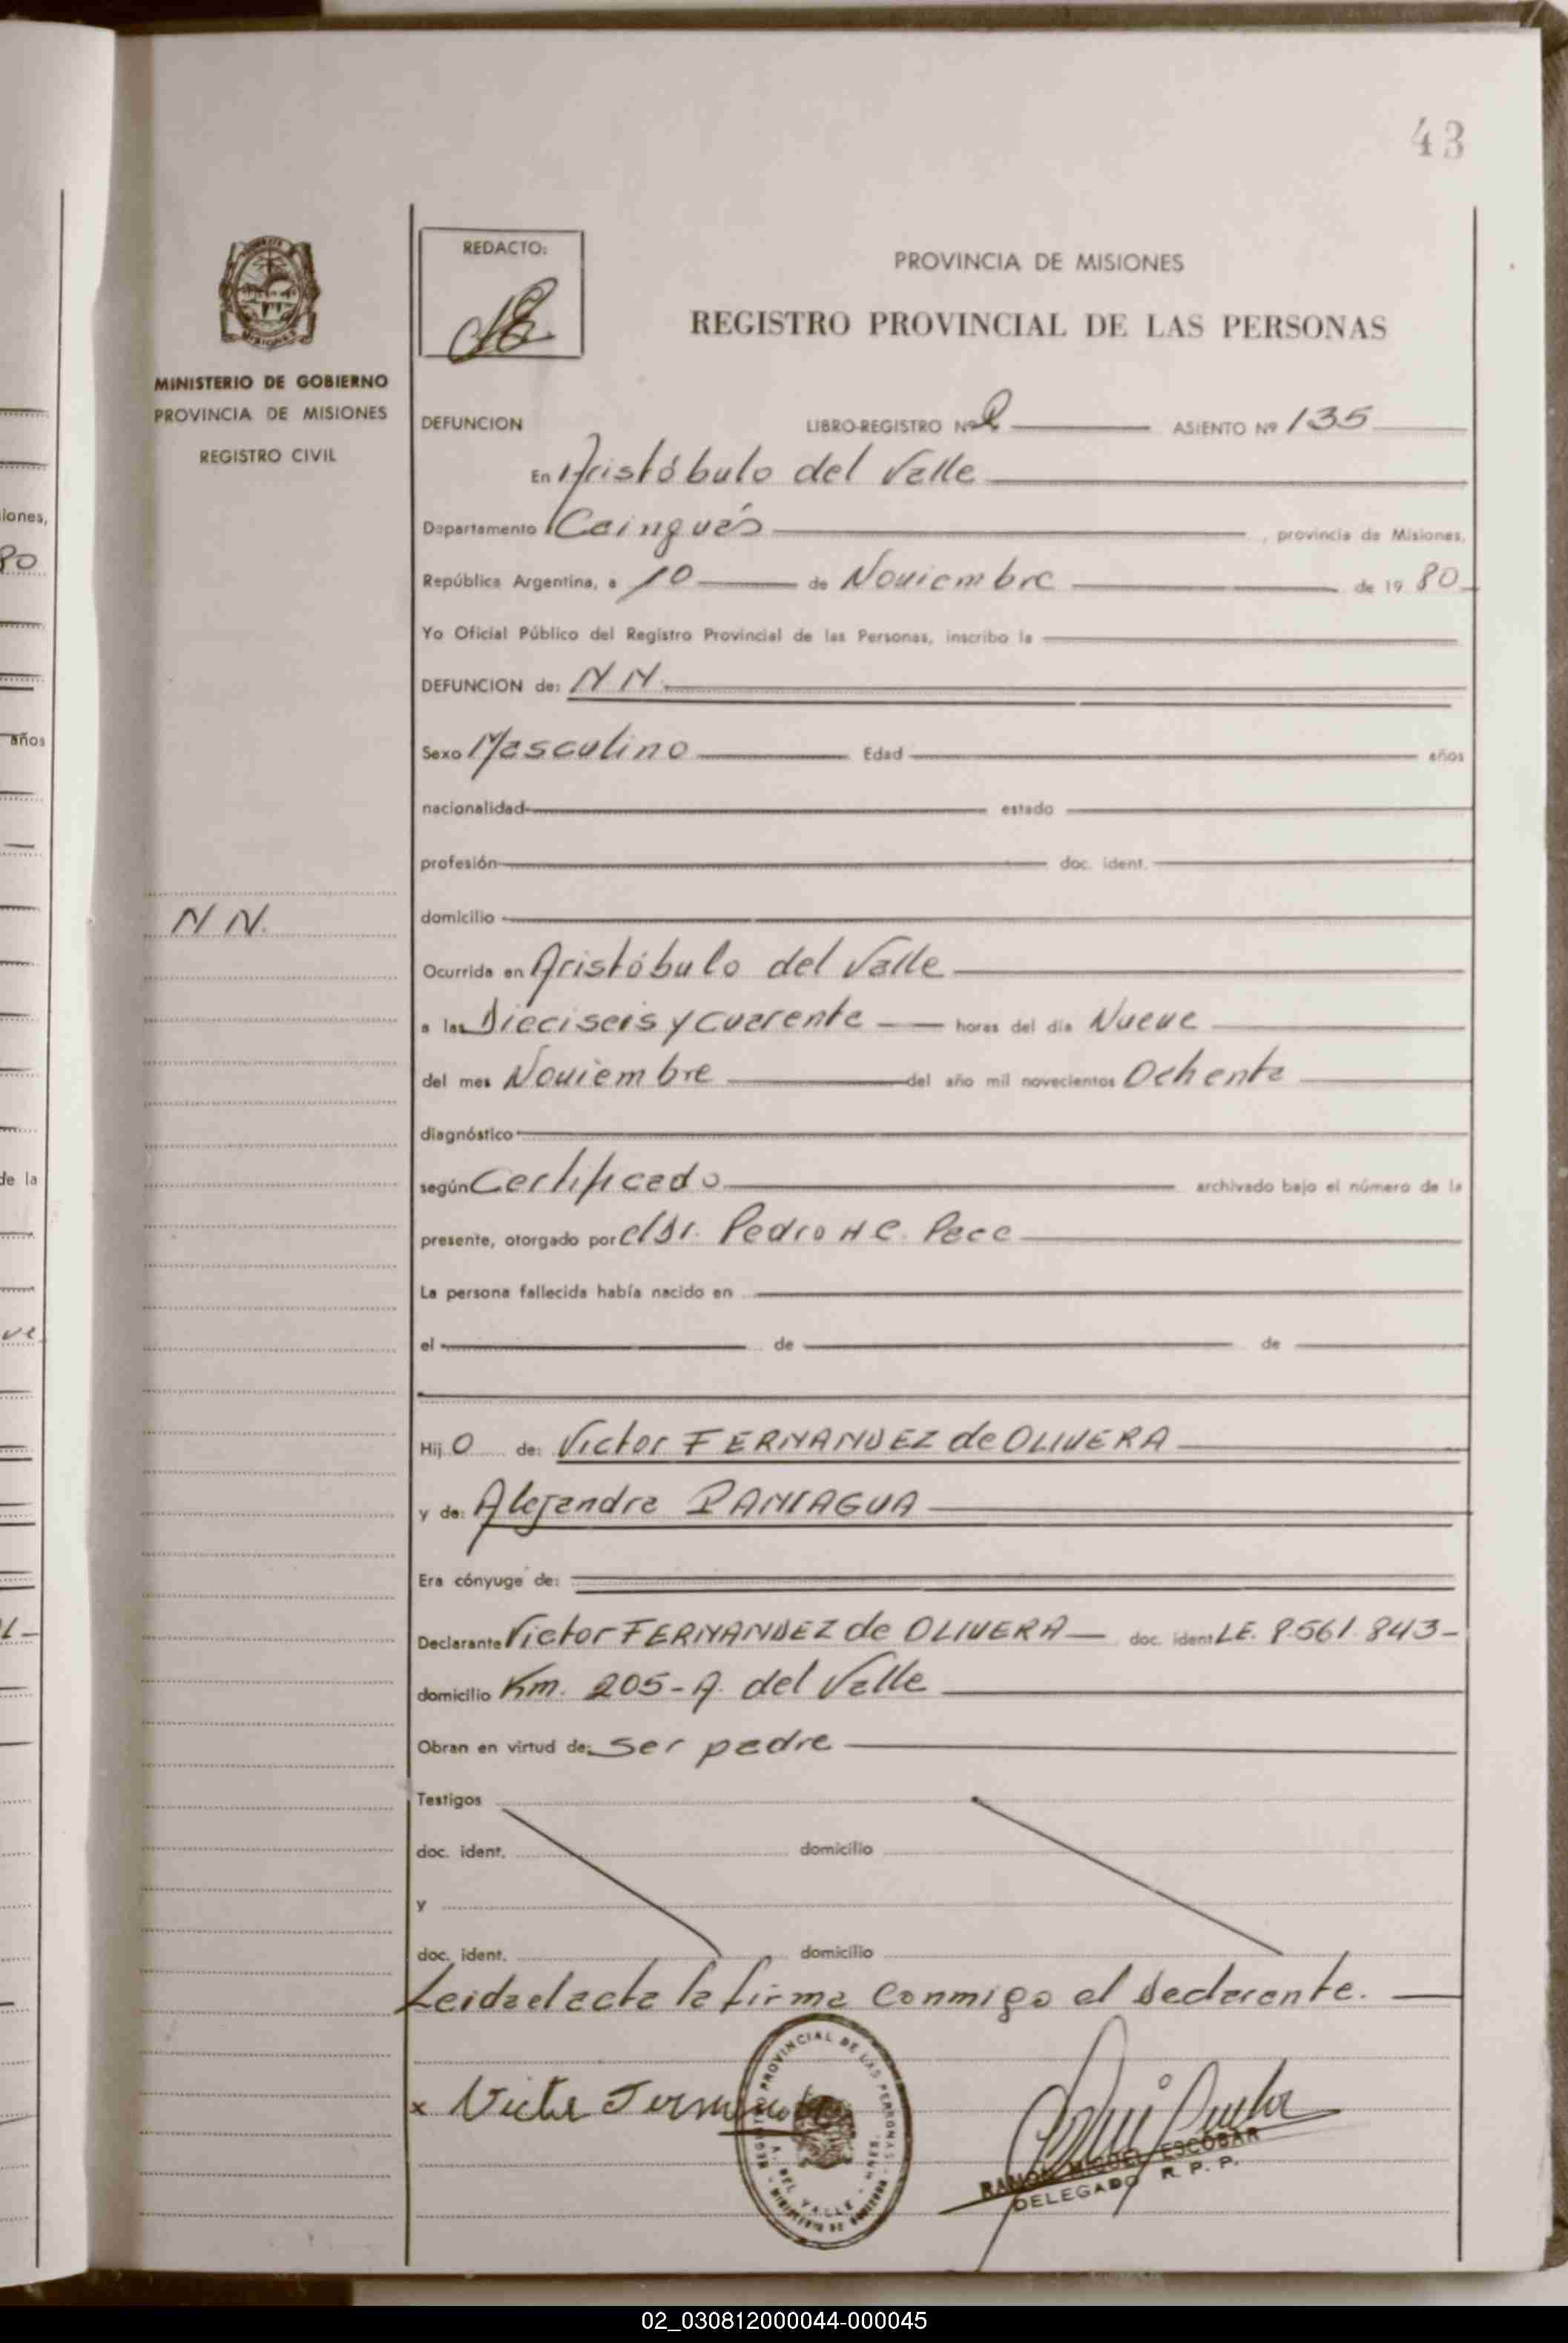 43
MINISTERIO DE GOBIERNO
PROVINCIA DE MISIONES
REGISTRO CIVIL
N N.
REDACTO:
PROVINCIA DE MISIONES
REGISTRO PROVINCIAL DE LAS PERSONAS
DEFUNCION LIBRO-REGISTRO Nº 2 ASIENTO Nº 135
En Aristóbulo del Valle
Departamento Cainguás, provincia de Misiones,
República Argentina, a 10 de Noviembre de 19 80
Yo Oficial Público del Registro Provincial de las Personas, inscribo la
DEFUNCION de: N N.
Sexo Masculino Edad años
nacionalidad estado
profesión doc. ident.
domicilio
Ocurrida en Aristóbulo del Valle
a las Dieciseis y cuarenta horas del día Nueve
del mes Noviembre del año mil novecientos Ochenta
diagnóstico
según Certificado archivado bajo el número de la
presente, otorgado por el Dr. Pedro H C.
La persona fallecida había nacido en
el de de
Hij o de: Victor FERNANDEZ de OLIVERA
y de: Alejandra PANIAGUA
Era cónyuge de:
Declarante Victor FERNANDEZ de OLIVERA doc. ident LE. 8.561.843-
domicilio Km. 205 - A. del Valle
Obran en virtud de: ser padre
Testigos
doc. ident. domicilio
y
doc. ident. domicilio
Leida el acta la firma conmigo el declarante.
x Victor
REGISTRO PROVINCIAL DE LAS PERSONAS
A. DEL VALLE - MNES.
MINISTERIO DE GOBIERNO
RAMON MIGUEL ESCOBAR
DELEGADO R. P. P.
iones,
80
años
de la
ve
02_030812000044-000045